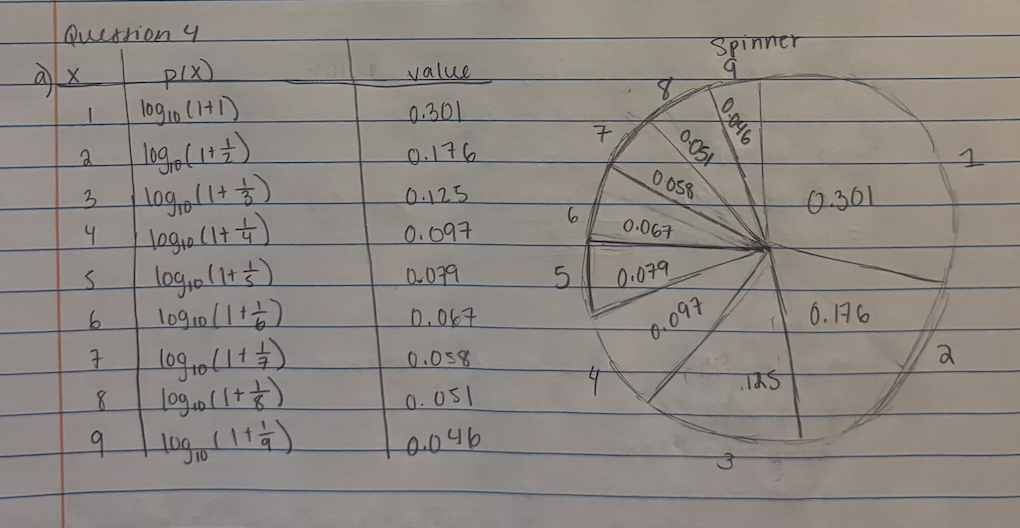 Question 4
a) x p(x) value
1 log₁₀(1+1) 0.301
2 log₁₀(1+1/2) 0.176
3 log₁₀(1+1/3) 0.125
4 log₁₀(1+1/4) 0.097
5 log₁₀(1+1/5) 0.079
6 log₁₀(1+1/6) 0.067
7 log₁₀(1+1/7) 0.058
8 log₁₀(1+1/8) 0.051
9 log₁₀(1+1/9) 0.046
Spinner
1
0.301
2
0.176
3
.125
4
0.097
5
0.079
6
0.067
7
0.058
8
0.051
9
0.046